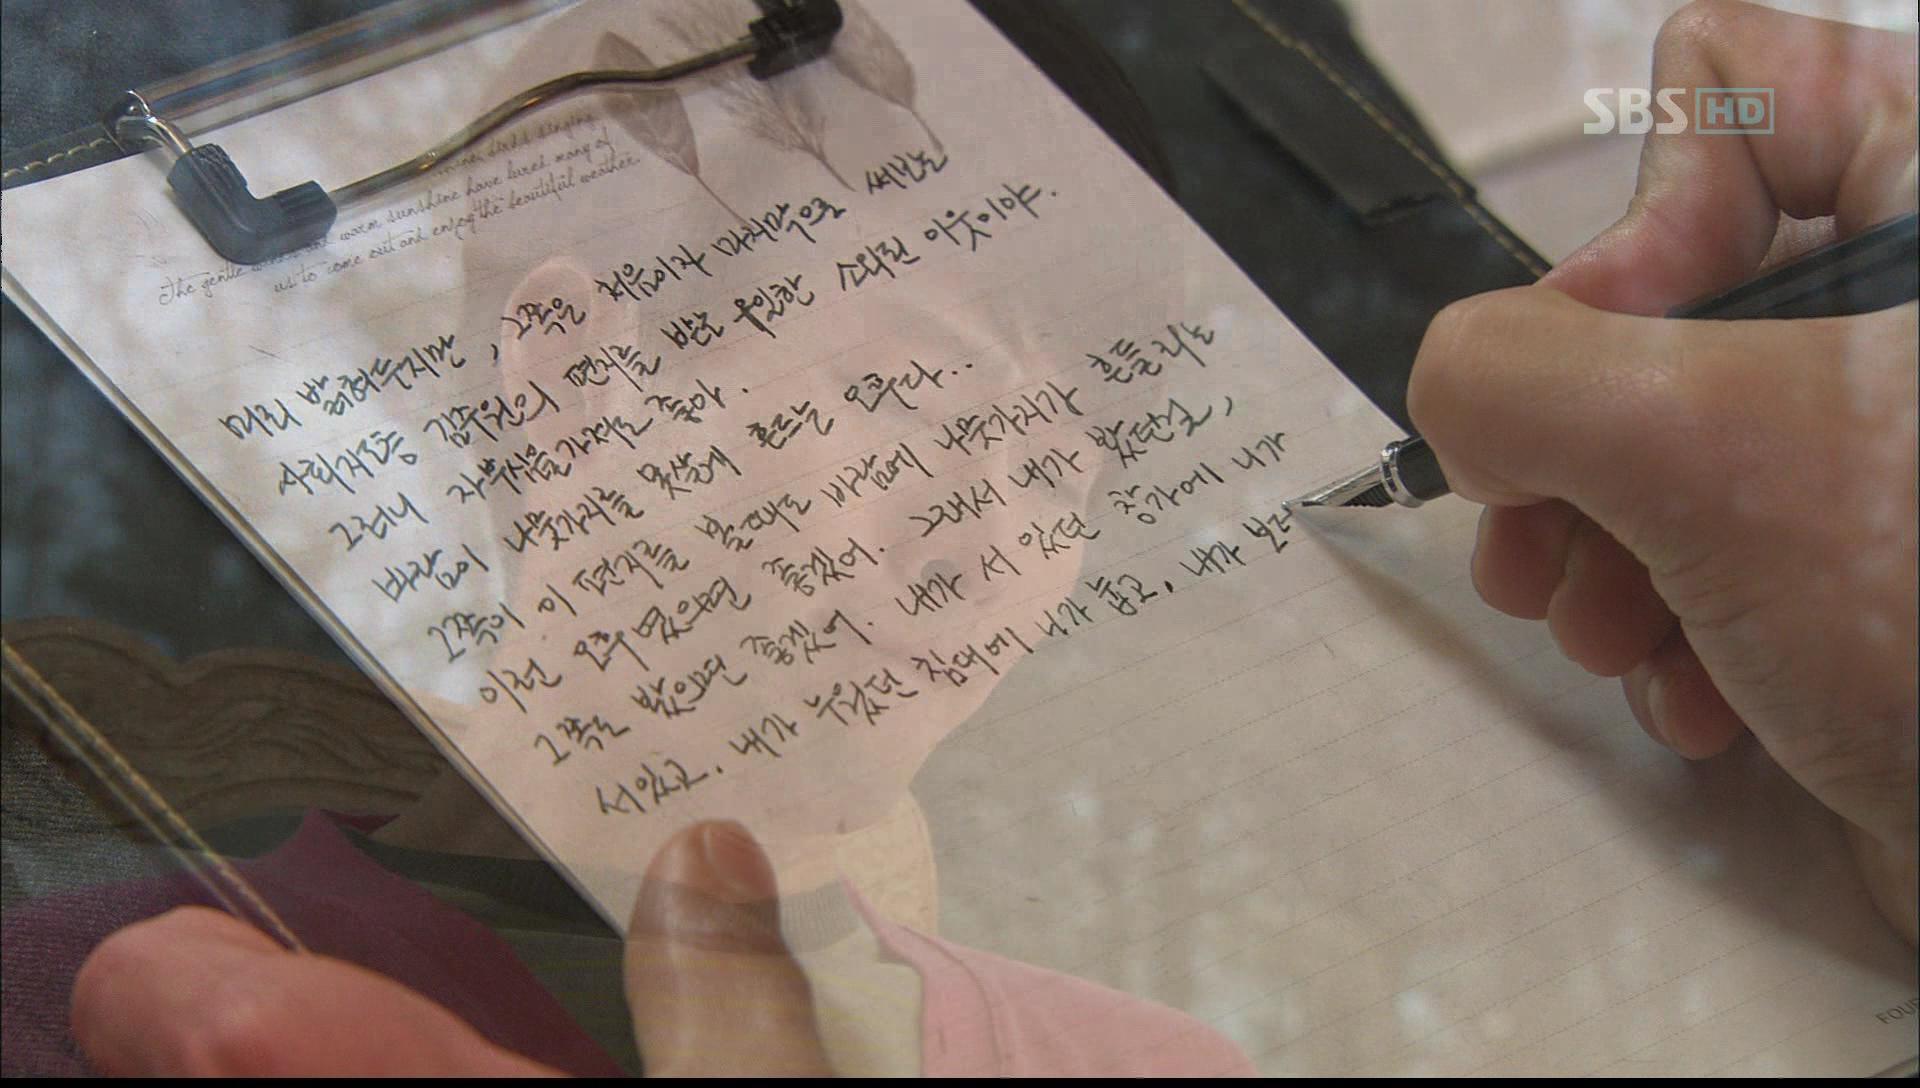 SBS HD
The gentle winds and warm sunshine have lured many of
us to come out and enjoy the beautiful weather.
미리 밝혀두지만, 그쪽은 처음이자 마지막으로 써보는
사회지도층 김주원의 편지를 받는 유일한 소외된 이웃이야.
그러니 자부심을 가져도 좋아.
바람이 나뭇가지를 못살게 흔드는 오후다..
그쪽이 이 편지를 볼때도 바람에 나뭇가지가 흔들리는
이런 오후였으면 좋겠어. 그래서 내가 봤던걸,
그쪽도 봤으면 좋겠어. 내가 서 있었던 창가에 니가
서있고. 내가 누웠던 침대에 니가 눕고. 내가 보